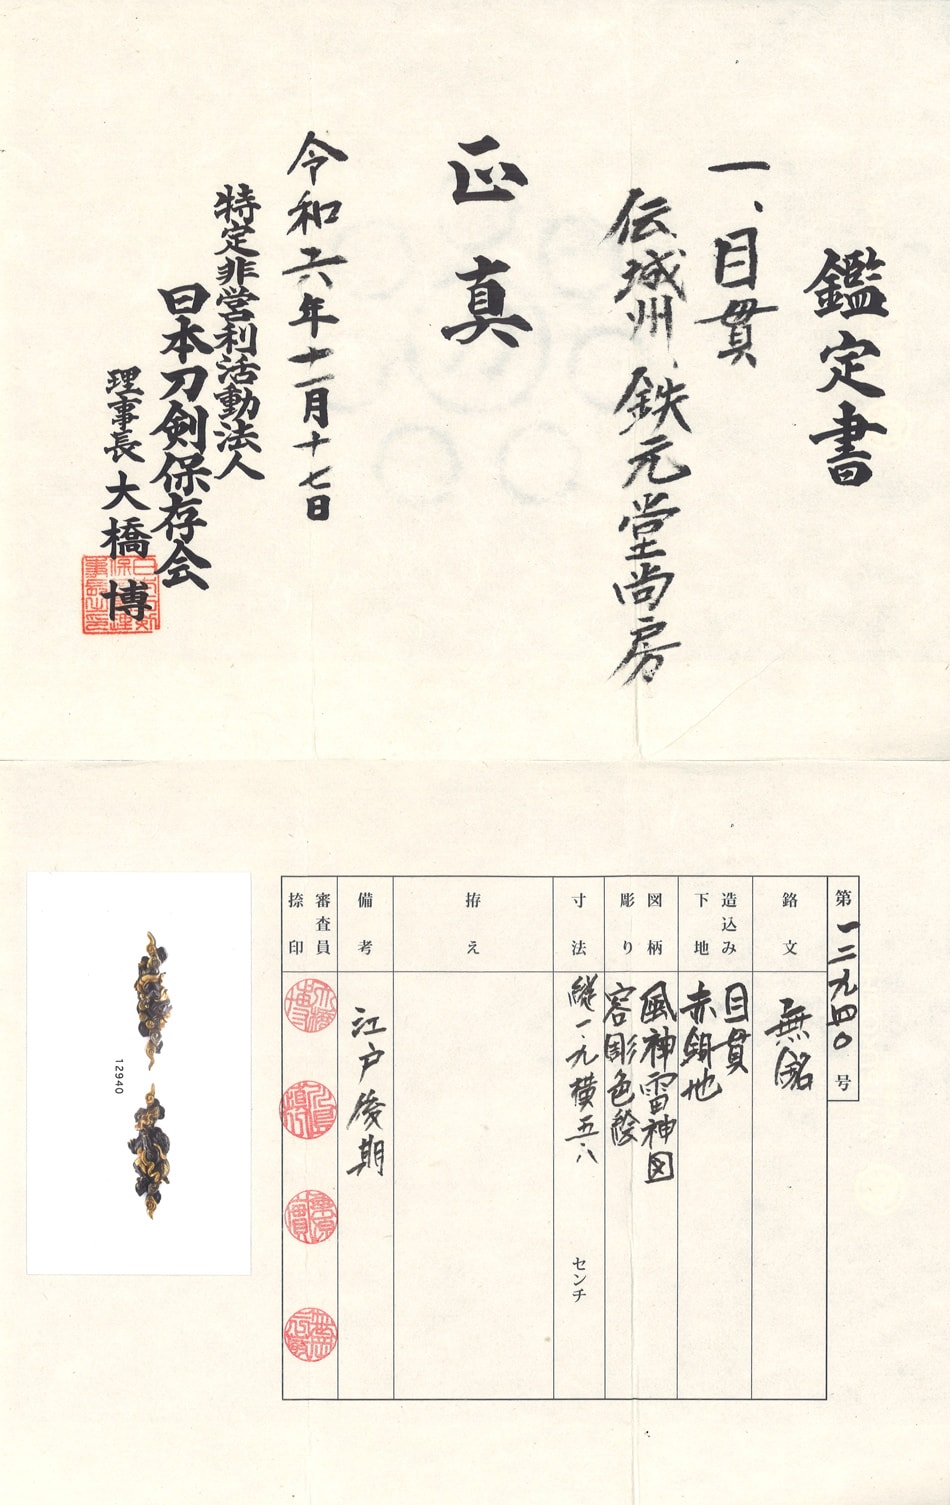 鑑定書
一、目貫
伝城州 鉄元堂尚房
正真
令和六年十一月十七日
特定非営利活動法人
日本刀剣保存会
理事長 大橋 博
第一二九四〇号
銘文
無銘
造込み
下地
目貫
赤銅地
図柄
彫り
風神雷神図
容彫色絵
寸法
縦一.九横五.八
センチ
拵え
備考
江戸後期
審査員
捺印
12940